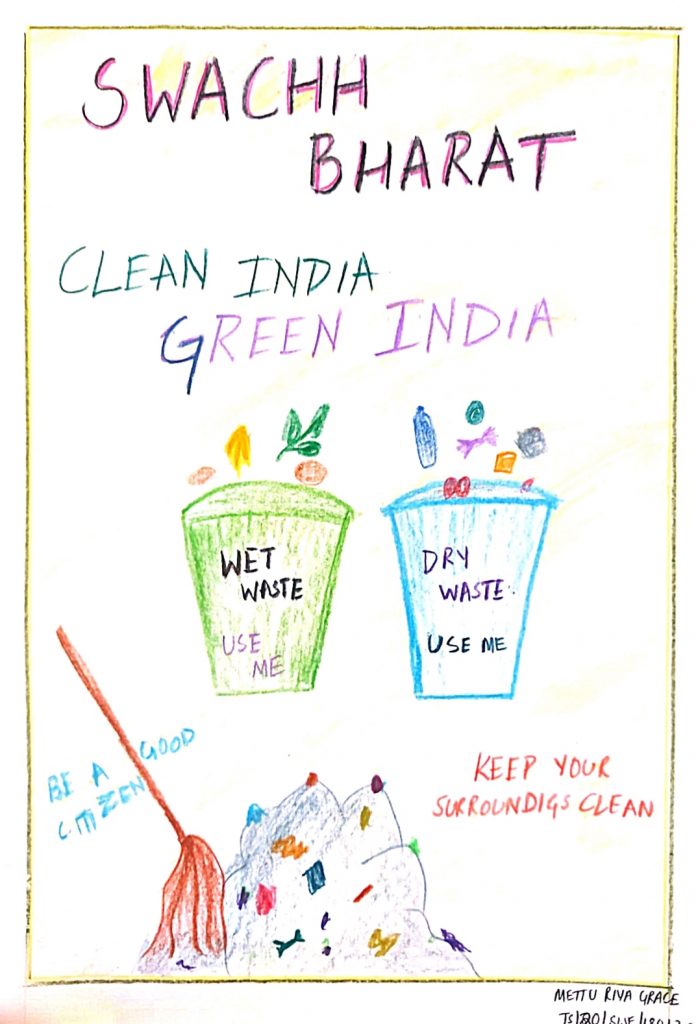 SWACHH
BHARAT
CLEAN INDIA
GREEN INDIA
WET
WASTE
USE
ME
DRY
WASTE
USE ME
BE A GOOD
CITIZEN
KEEP YOUR
SURROUNDIGS CLEAN
METTU RIYA GRACE